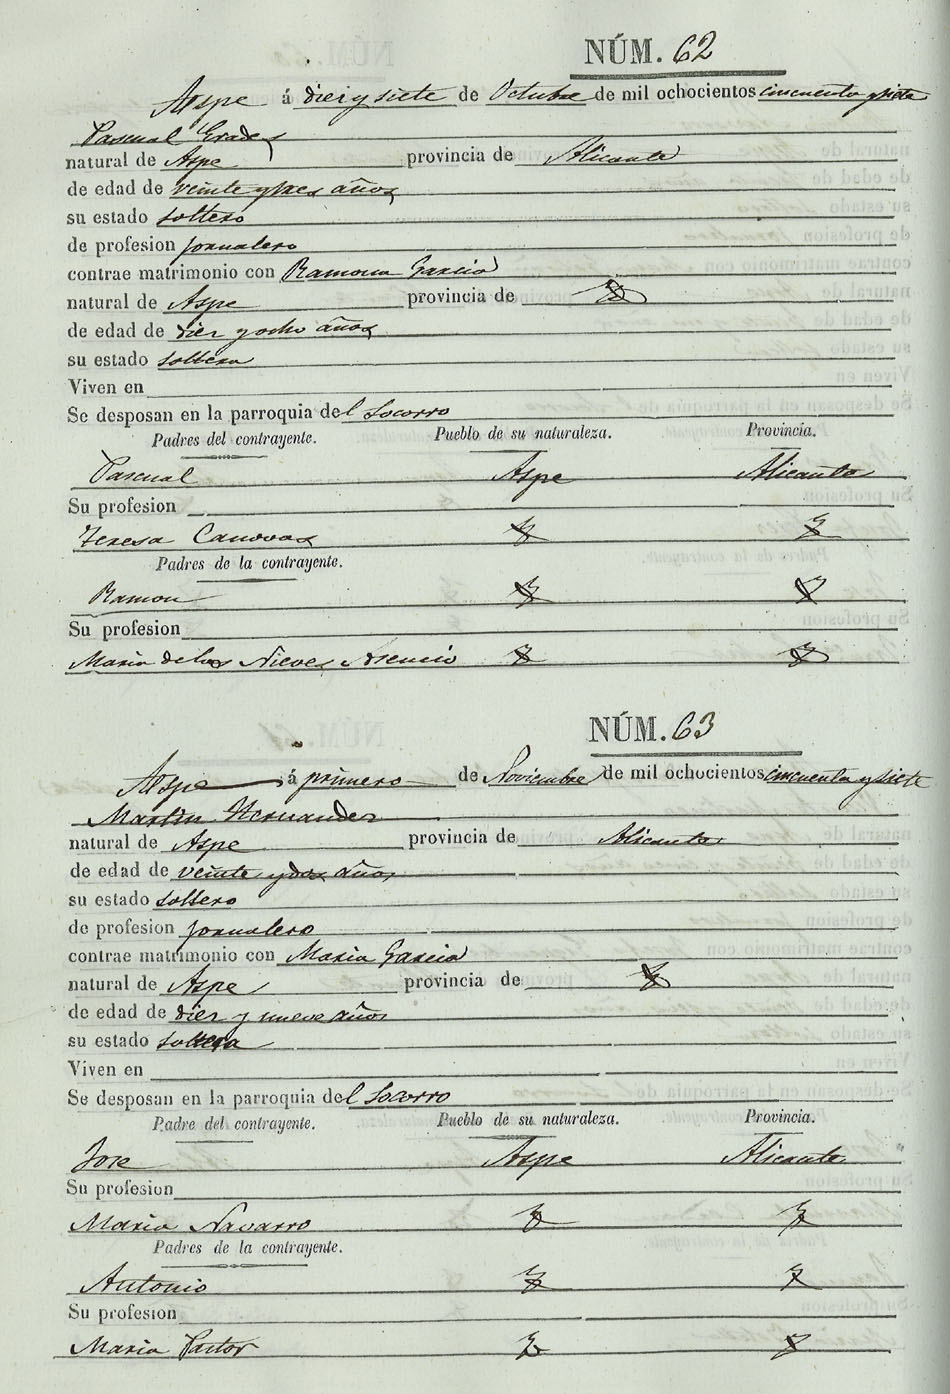 NÚM. 62
Aspe á diez y siete de Octubre de mil ochocientos cincuenta y siete
Pascual Grades
natural de Aspe provincia de Alicante
de edad de veinte y tres años
su estado soltero
de profesion jornalero
contrae matrimonio con Ramona Garcia
natural de Aspe provincia de
de edad de diez y ocho años
su estado soltera
Viven en
Se desposan en la parroquia del Socorro
Padres del contrayente. Pueblo de su naturaleza. Provincia.
Pascual Aspe Alicante
Su profesion
Teresa Canovas
Padres de la contrayente.
Ramon
Su profesion
Maria de las Nieves Asencio
NÚM. 63
Aspe á primero de Noviembre de mil ochocientos cincuenta y siete
Martin Hernandez
natural de Aspe provincia de Alicante
de edad de veinte y dos años
su estado soltero
de profesion jornalero
contrae matrimonio con Maria Garcia
natural de Aspe provincia de
de edad de diez y nueve años
su estado soltera
Viven en
Se desposan en la parroquia del Socorro
Padre del contrayente. Pueblo de su naturaleza. Provincia.
Jose Aspe Alicante
Su profesion
Maria Navarro
Padres de la contrayente.
Antonio
Su profesion
Maria Pastor